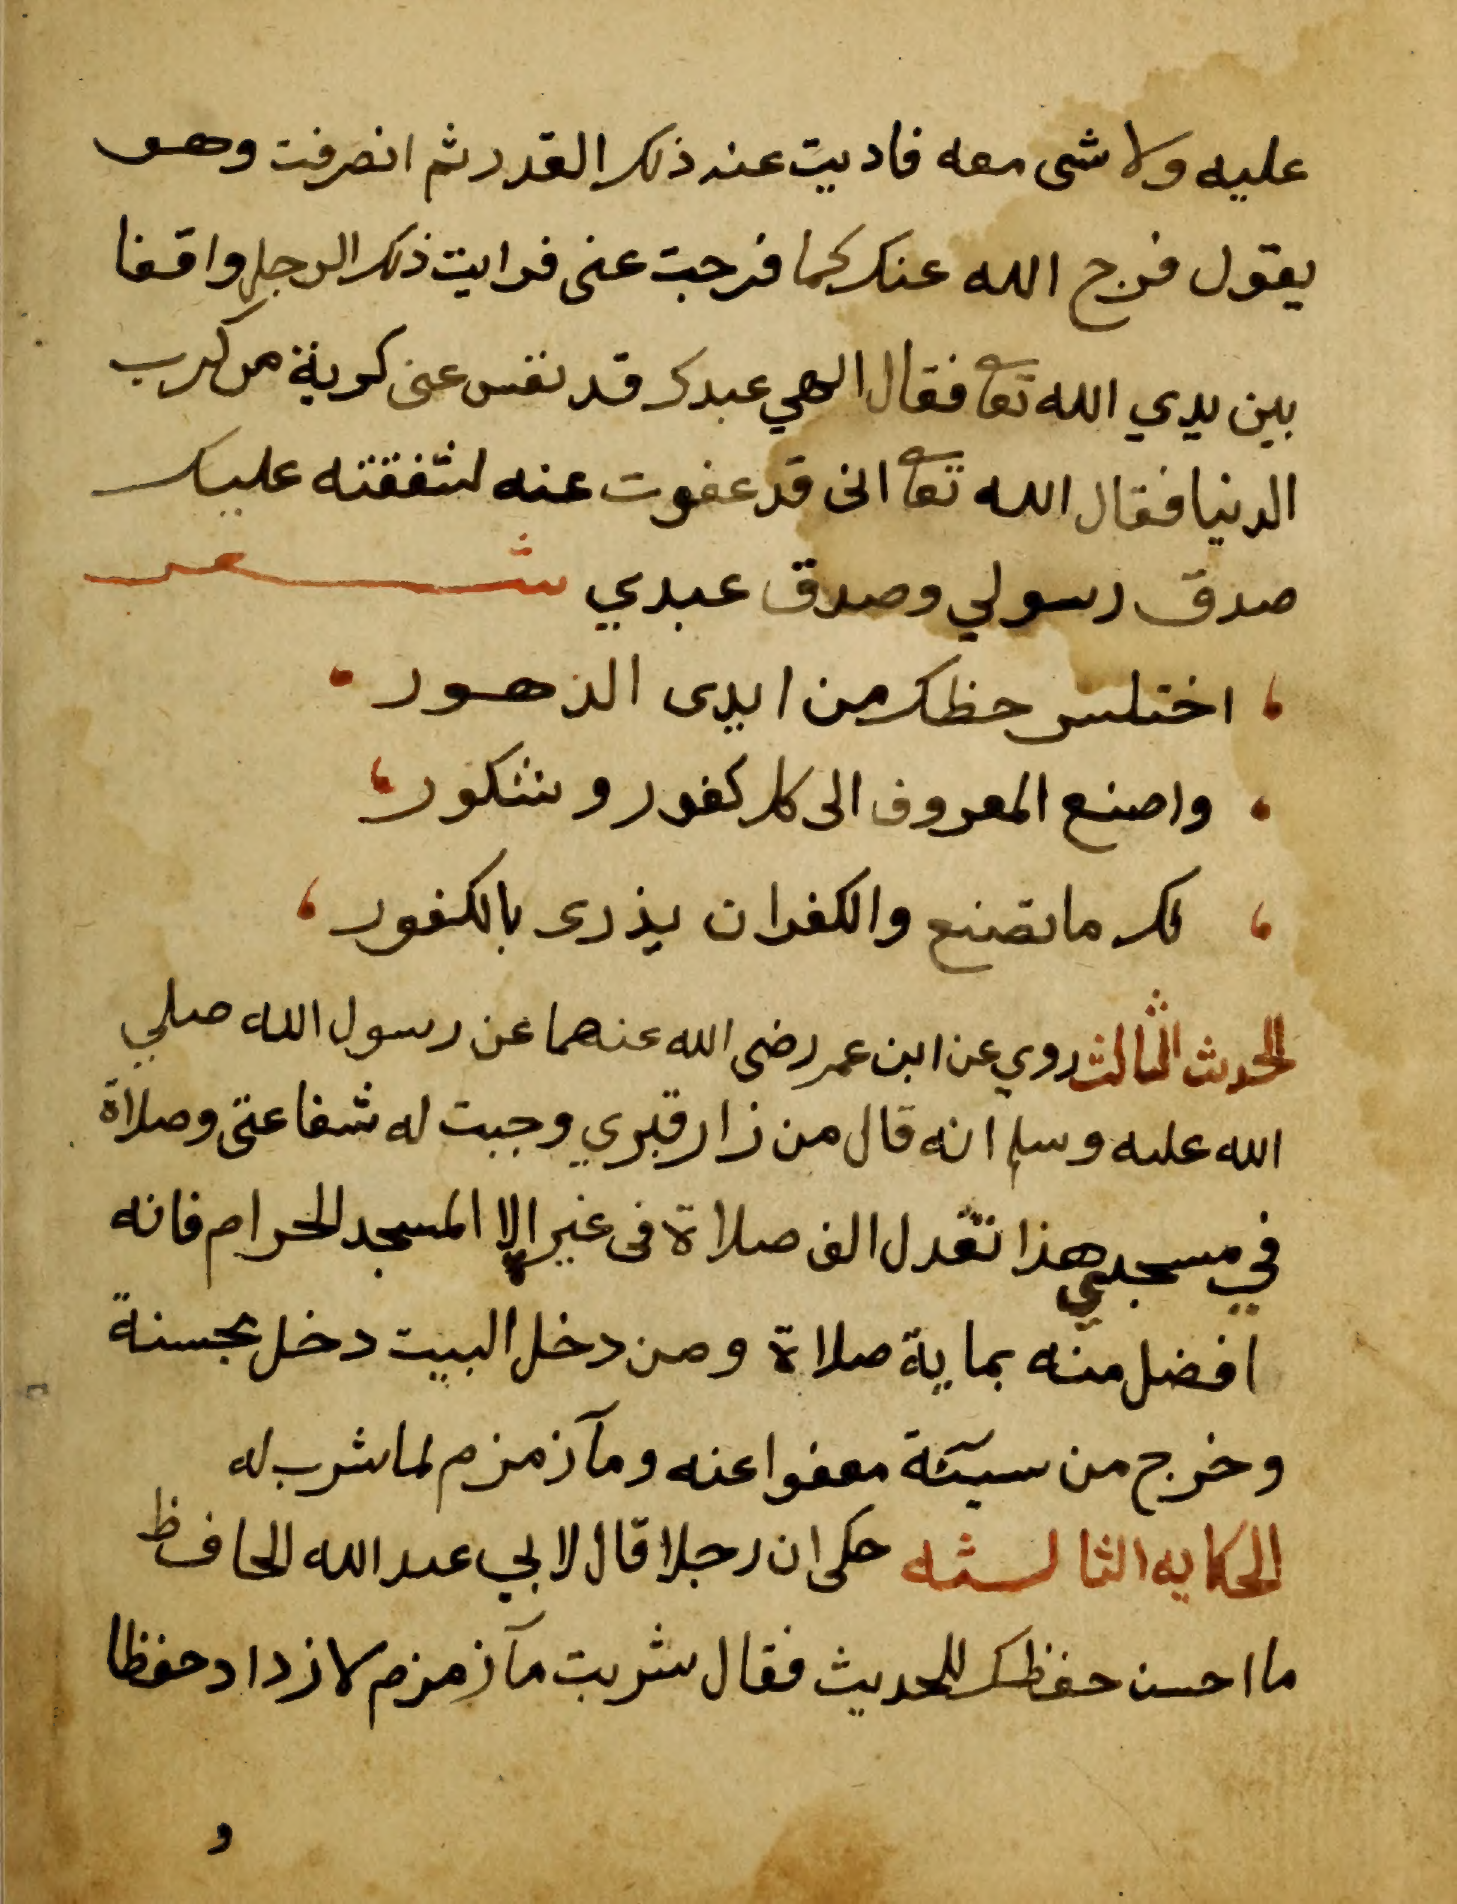 عليه ولا شى معه فاديت عنه ذلك القدر ثم انصرفت وهو
يقول فرج الله عنك كما فرجت عنى فرايت ذلك الرجل واقفا
بين يدي الله تعا فقال الهي عبدك قد نفس عنى كربة من كرب
الدنيا فقال الله تعا انى قد عفوت عنه لشفقته عليك
صدق رسولي وصدق عبدي شعر
اختلس حظك من ايدى الدهور
واصنع المعروف الى كل كفور وشكور
لك ما تصنع والكفران يذرى بالكفور
الحديث الثالث روي عن ابن عمر رضى الله عنهما عن رسول الله صلي
الله عليه وسلم انه قال من زار قبري وجبت له شفاعتى وصلاة
في مسجدي هذا تعدل الف صلاة فى غير الا المسجد الحرام فانه
افضل منه بماية صلاة ومن دخل البيت دخل بحسنة
وخرج من سيئة معفوا عنه ومآ زمزم لما شرب له
الحكايه الثالثه حكى ان رجلا قال لابي عبد الله الحافظ
ما احسن حفظك للحديث فقال شربت مآ زمزم لازداد حفظا
و